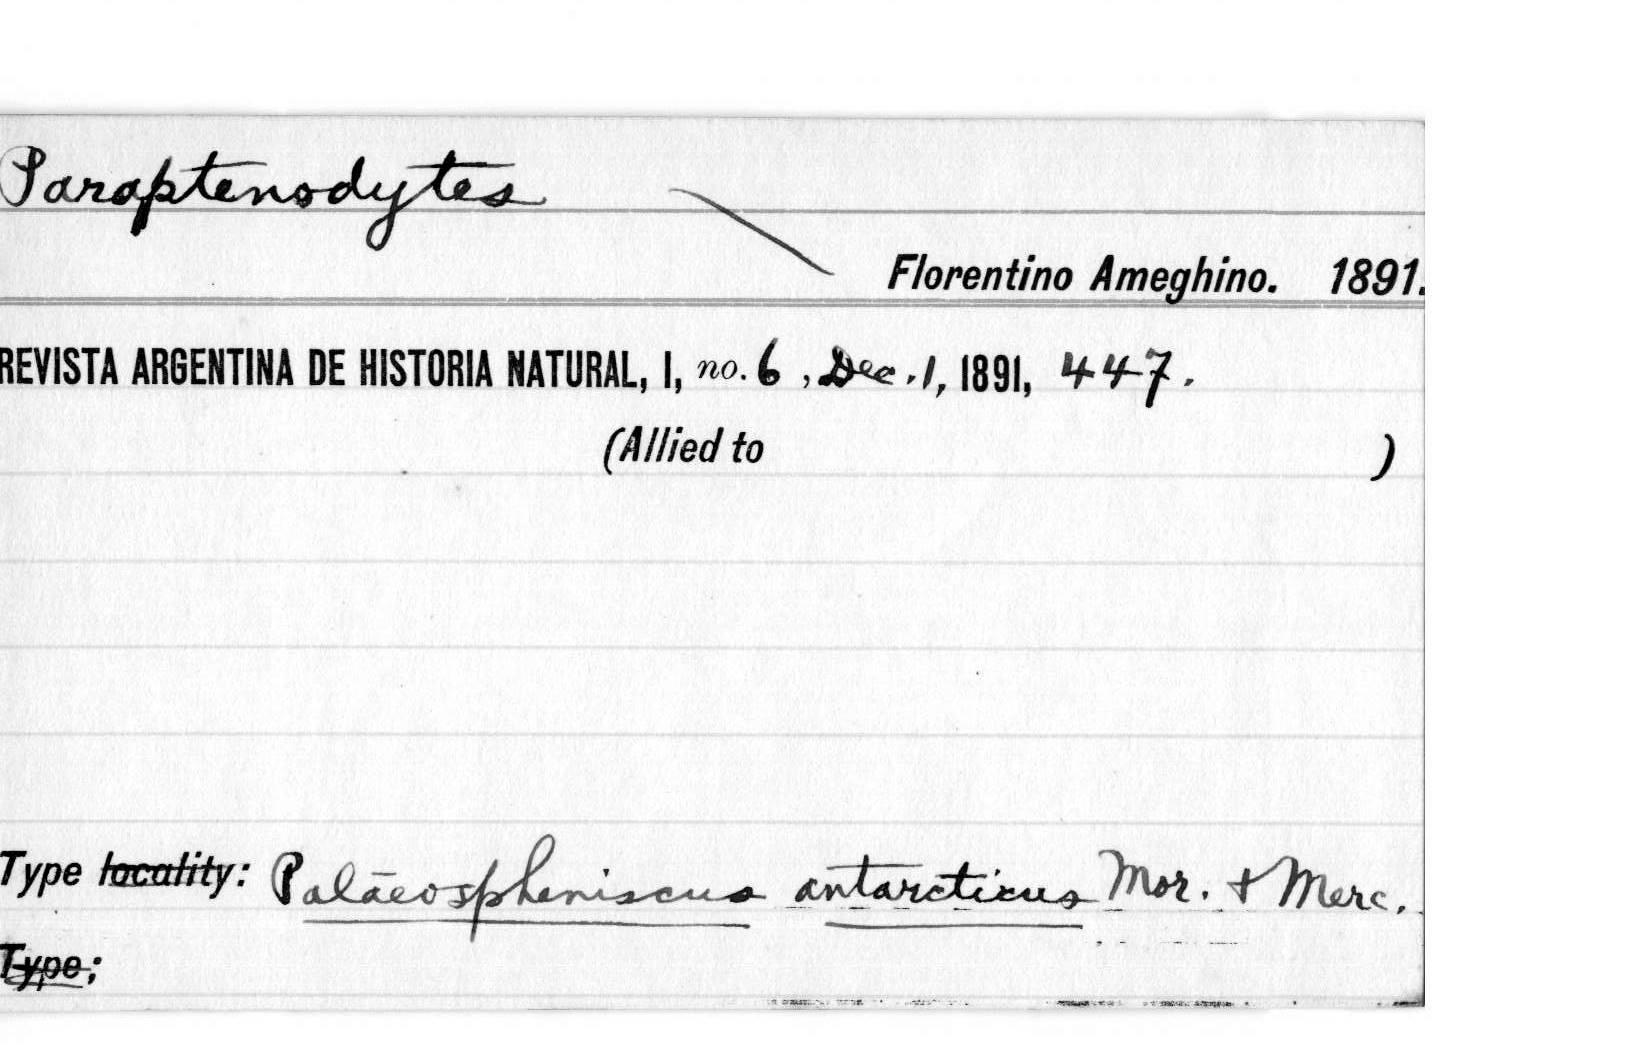 Paraptenodytes
Florentino Ameghino. 1891.
REVISTA ARGENTINA DE HISTORIA NATURAL, I, no. 6, Dec. 1, 1891, 447.
(Allied to )
Type locality: Palaeospheniscus antarcticus Mor. & Merc.
Type: